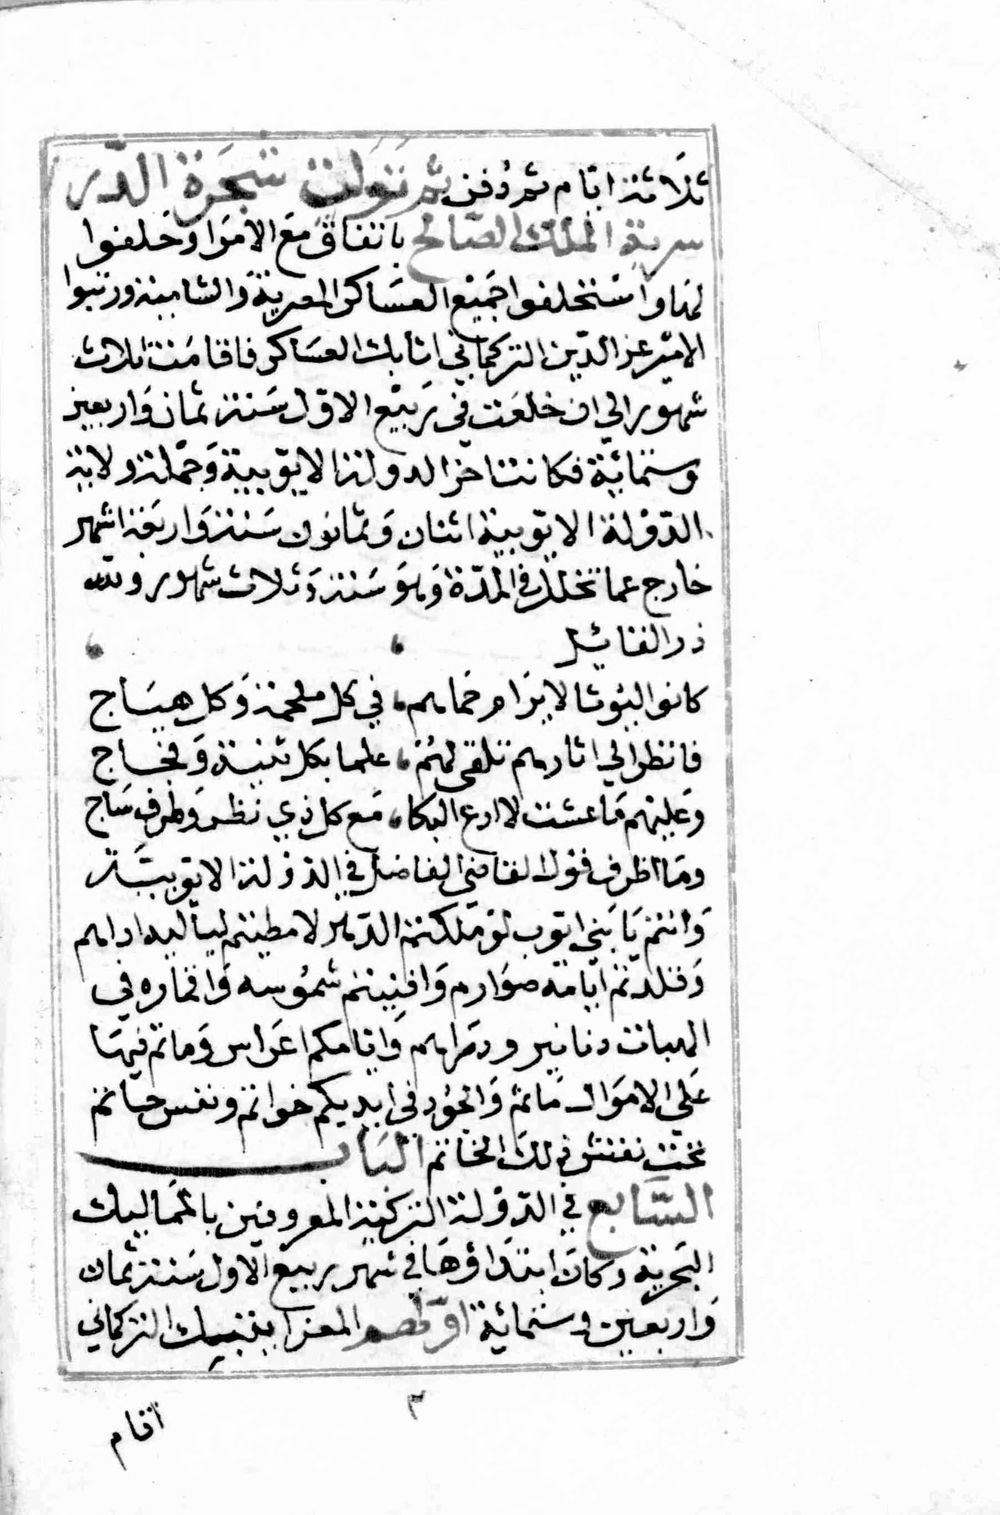 ثلاثة ايام ثم دفن ثم تولت شجرة الدر
سرية الملك الصالح باتفاق مع الامرا وحلفوا
لها واستخلفوا جميع العساكر المصرية والشامية ورتبوا
الامير عز الدين التركماني اتابك العساكر فاقامت ثلاث
شهور الي ان خلعت في ربيع الاول سنة ثمان واربعين
وستمائة فكانت اخر الدولة الايوبية وجملة ولاية
الدولة الايوبية اثنان وثمانون سنة واربعة اشهر
خارج عما تخلل في المدة وهو سنة وثلاث شهور ولله
در القائل
كانوا ليوثا لا يرام حماهم، في كل ملحمة وكل هياج
فانظر الي اثارهم تلقي لهم، علما بكل ثنية وفجاج
وعليهم ما عشت لا ادع البكا، مع كل ذي نظر وطرف ساج
وما اظرف قول القاضي الفاضل في الدولة الايوبية
وانتم يا بني ايوب لو ملكتم الدهر لامطيتم لياليه اداهم
وقلدتم ايامه صوارم وافنيتم شموسه واقماره في
الهبات دنانير ودراهم وايامكم اعراس وما تم فيها
علي الاموال ماتم والجود في ايديكم خواتم ونفس حاتم
تحت نقش ذلك الخاتم الباب
السابع في الدولة التركية المعروفين بالمماليك
البحرية وكان ابتداؤها في شهر ربيع الاول سنة ثمان
واربعين وستمائة اولهم المعز ايبك التركماني
٣
اقام